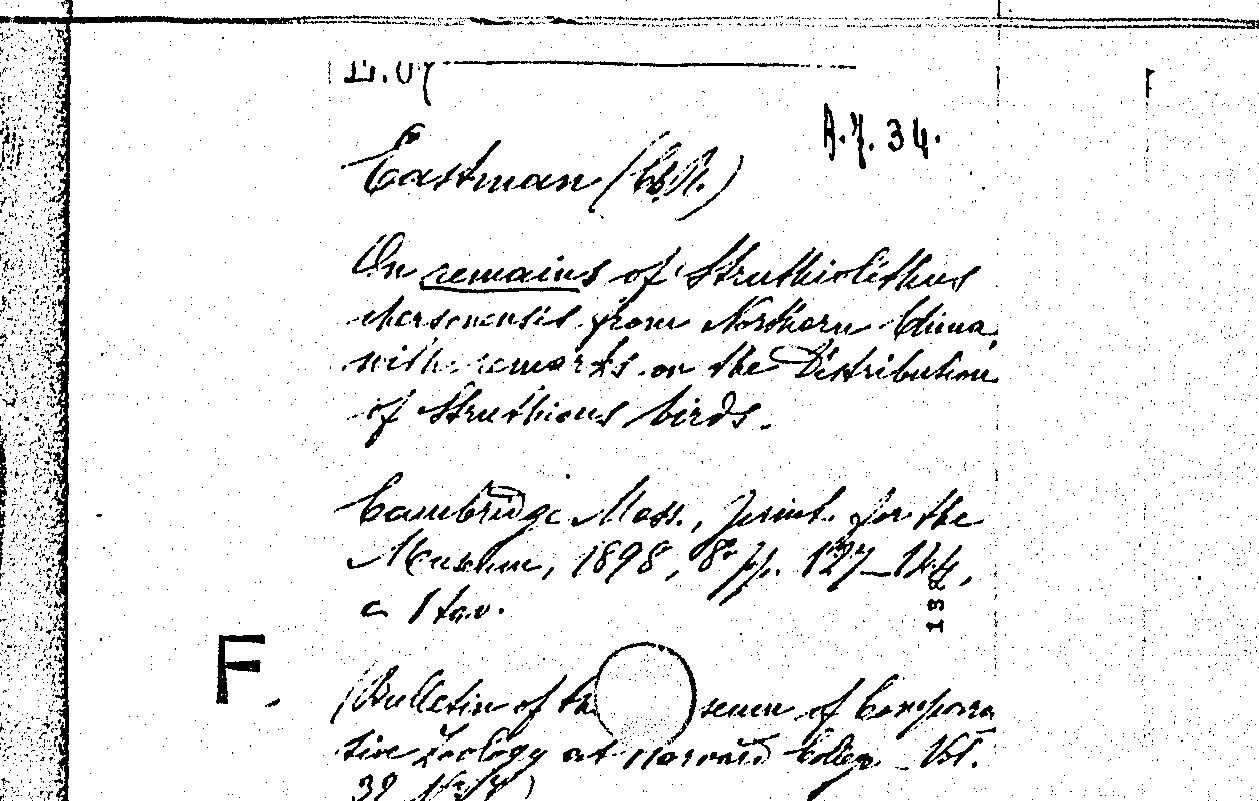 A.7.34.
Eastman (C.R.)
On remains of Struthiolithus
chersonensis from Northern China,
with remarks on the Distribution
of Struthious birds.
Cambridge Mass., print. for the
Museum, 1898, 8° pp. 127-144,
c 1 tav.
138
F.
(Bulletin of the seum of Compara
tive Zoology at Harvard Colleg Vol.
32 N. 7)